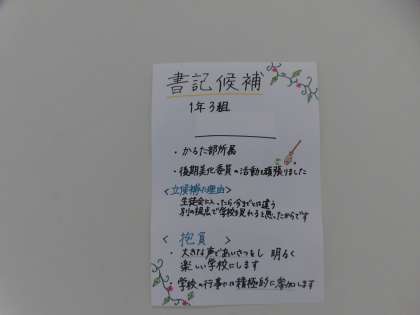 書記候補
1年3組
・かるた部所属
・後期美化委員の活動を頑張りました
<立候補の理由>
生徒会に入ったら今までとは違う
別の視点で学校を見れると思ったからです
< 抱負 >
・大きな声であいさつをし 明るく
楽しい学校にします
・学校の行事に積極的に参加します